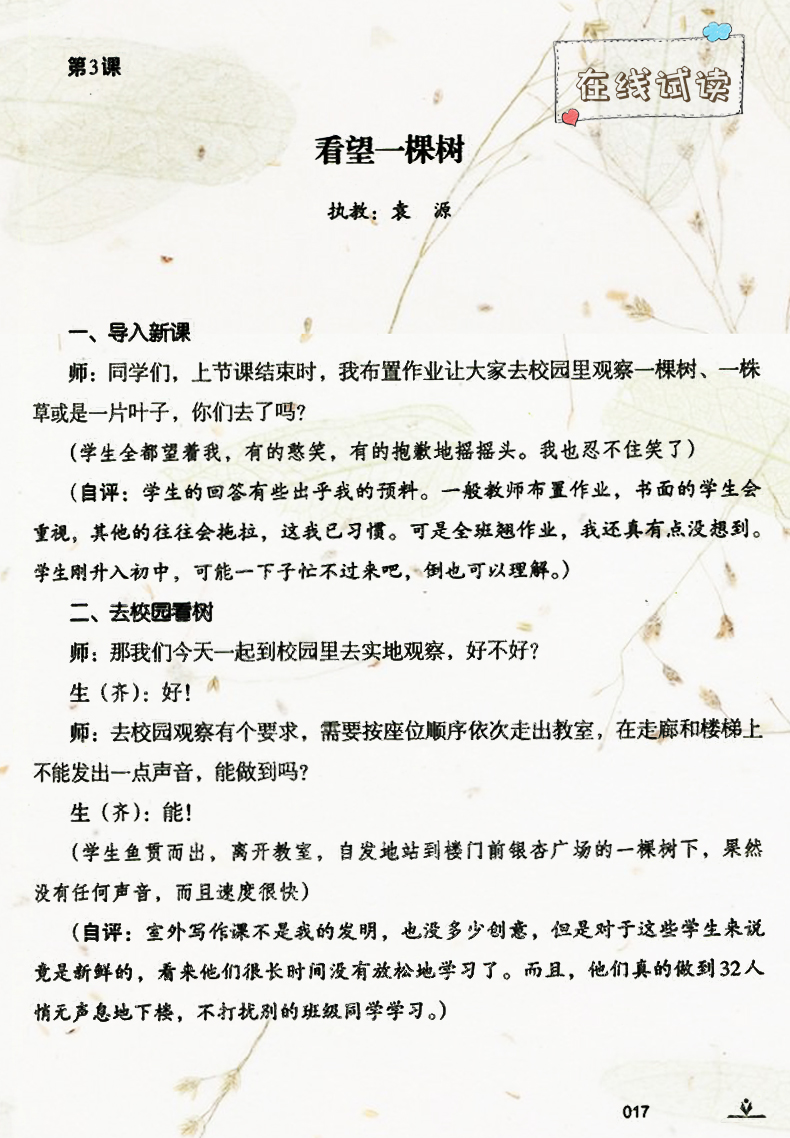 第3课
在线试读
看望一棵树
执教：袁 源
一、导入新课
师：同学们，上节课结束时，我布置作业让大家去校园里观察一棵树、一株
草或是一片叶子，你们去了吗？
（学生全都望着我，有的憨笑，有的抱歉地摇摇头。我也忍不住笑了）
（自评：学生的回答有些出乎我的预料。一般教师布置作业，书面的学生会
重视，其他的往往会拖拉，这我已习惯。可是全班翘作业，我还真有点没想到。
学生刚升入初中，可能一下子忙不过来吧，倒也可以理解。）
二、去校园看树
师：那我们今天一起到校园里去实地观察，好不好？
生（齐）：好！
师：去校园观察有个要求，需要按座位顺序依次走出教室，在走廊和楼梯上
不能发出一点声音，能做到吗？
生（齐）：能！
（学生鱼贯而出，离开教室，自发地站到楼门前银杏广场的一棵树下，果然
没有任何声音，而且速度很快）
（自评：室外写作课不是我的发明，也没多少创意，但是对于这些学生来说
竟是新鲜的，看来他们很长时间没有放松地学习了。而且，他们真的做到32人
悄无声息地下楼，不打扰别的班级同学学习。）
017